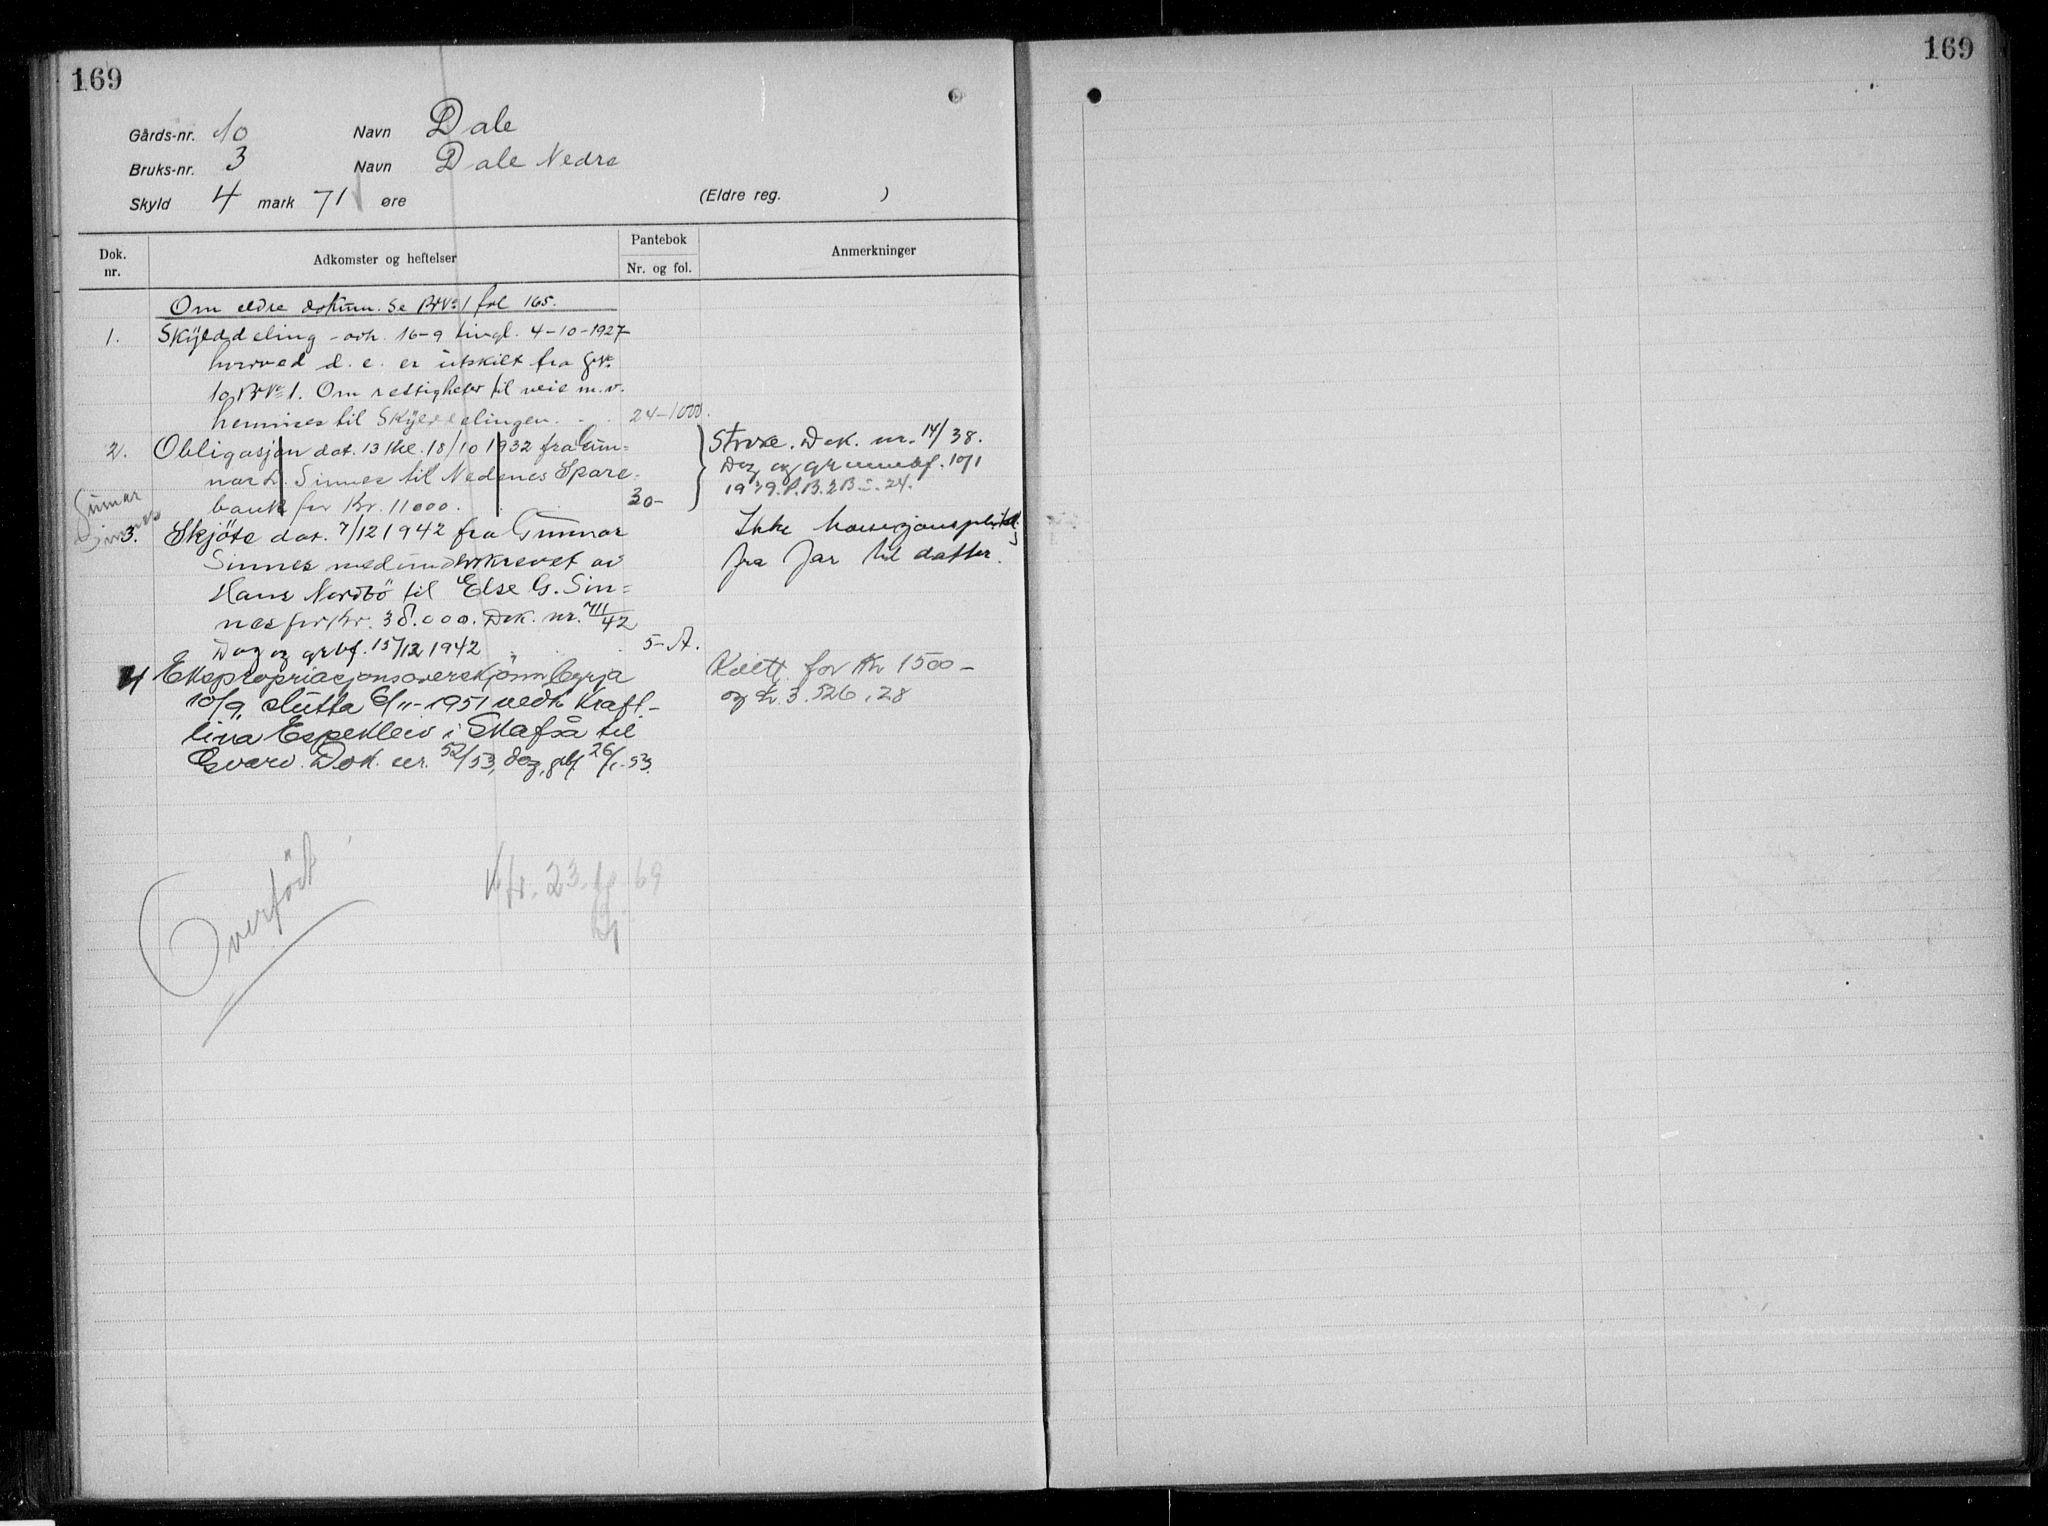 169
169
Gårds-nr. 10 Navn Dale
Bruks-nr. 3 Navn Dale Nedre
Skyld 4 mark 71 øre (Eldre reg. )
Dok. nr.
Adkomster og heftelser
Pantebok
Nr. og fol.
Anmerkninger
Om eldre dokum. Se Br№ 1 fol 165.
1. Skylddeling - avh. 16-9 tingl. 4-10-1927
hvorved d. e. er utskilt fra G№
10 Br№ 1. Om rettigheter til veie m.v.
henvises til Skylddelingen. 24-1000.
2. Obligasjon dat. 13 thl. 18/10 1932 fra Gun=
nar L. Sinnes til Nedenes Spare=
bank for Kr. 11000. 30-
Strøke. Dok. nr. 14/38.
Dag og grunnbf. 10/1
1939. P.B. 2B s. 24.
Gunnar
Sinnes
3. Skjöte dat. 7/12 1942 fra Gunnar
Sinnes medunderskrevet av
Hans Nordbö til Else G. Sin=
nes for Kr. 38.000. Dok. nr. 711/42
Dag og grbf. 15/12 1942 5-A.
Ikke konsesjonsplikt.
fra far til datter.
4 Ekspropriasjonsoverskjönn byrja
10/9, slutta 6/11-1951 vedk kraft-
lina Espeklev i Skafså til
Dok. nr. 52/53, dag, grbf 26/1-53.
for Kr 1500-
og Kr 3.526,28
Overfört